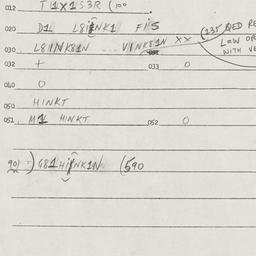 012 T1X1S3R (100
020 D1L L8IINK1 FIIS
030 L8IINK81N VIINK81N XX (235 RED RE
LOW OR
WITH VE
032 + 033 0
040 0
050 HINKT
051 M1 HINKT 052 0
901 :) G81HIINK1N (590